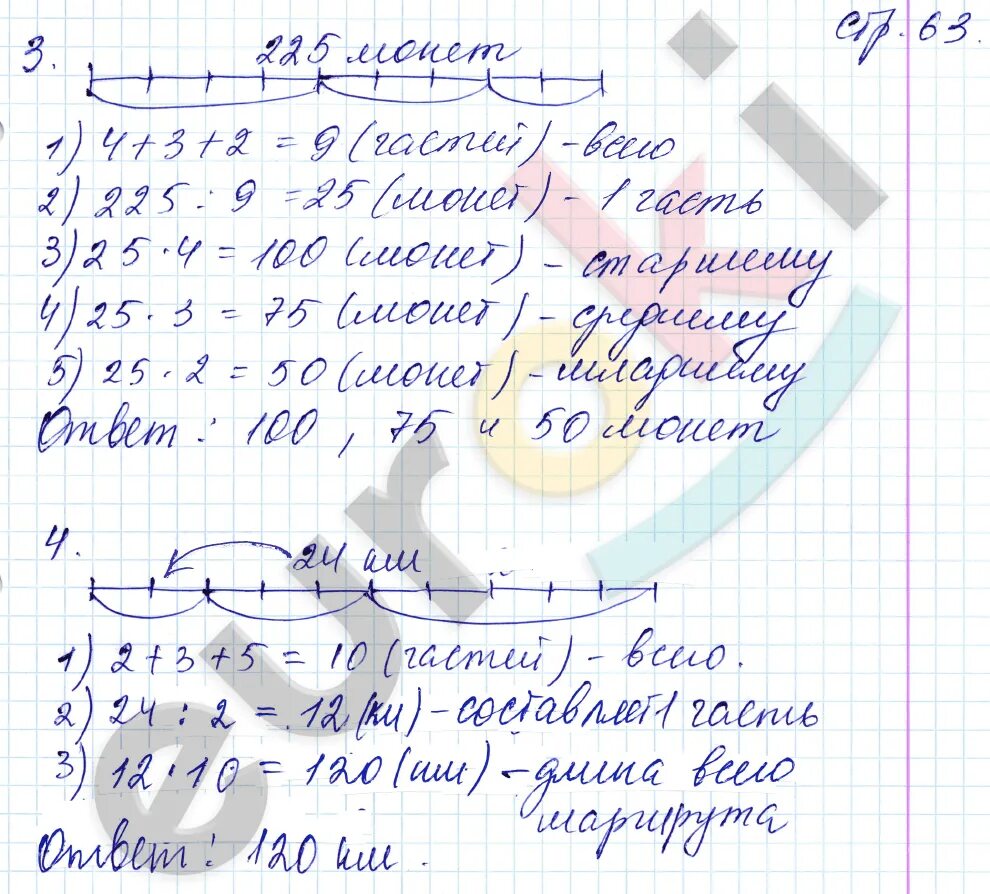 стр. 63.
3. 225 монет
1) 4+3+2 = 9 (частей) - всего
2) 225 : 9 = 25 (монет) - 1 часть
3) 25 · 4 = 100 (монет) - старшему
4) 25 · 3 = 75 (монет) - среднему
5) 25 · 2 = 50 (монет) - младшему
Ответ : 100 , 75 и 50 монет
4. 24 км
1) 2+3+5 = 10 (частей) - всего.
2) 24 : 2 = 12 (км) - составляет 1 часть
3) 12 · 10 = 120 (км) - длина всего
маршрута
Ответ : 120 км .
euroki